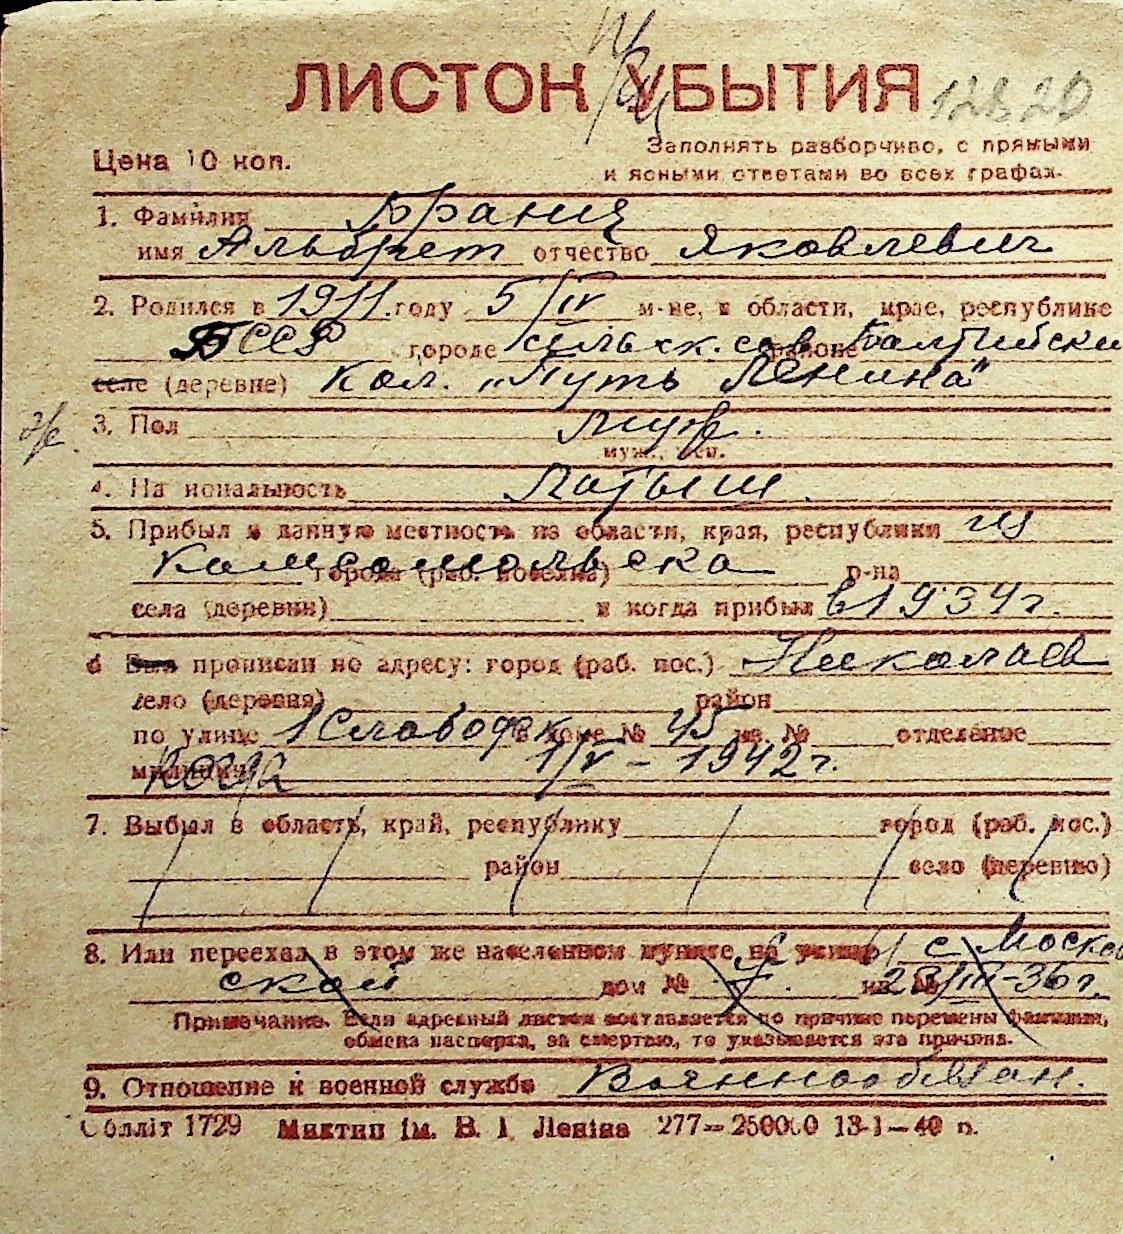 ЛИСТОК УБЫТИЯ
Цена 10 коп.
Заполнять разборчиво, с прямыми
и ясными ответами во всех графах.
1. Фамилия
имя Альбрет отчество Яковлевич
2. Родился в 1911. году 5/IV м-це, в области, крае, республике
БССР городе сельск. сов районе Балтийски
селе (деревне) Кол. „Путь Ленина"
3. Пол муж.
муж., жен.
4. Национальность Латыш.
5. Прибыл в данную местность из области, края, республики из
Комсомольска города (раб. поселка) р-на
села (деревни) и когда прибыл в 1934 г.
6 Был прописан по адресу: город (раб. пос.) Николаев
село (деревня) район
по улице 1 Слободск. в доме № 45 кв. № отделение
милиции когда 1/V - 1942 г.
7. Выбыл в область, край, республику город (раб. пос.)
район село (деревню)
8. Или переехал в этом же населенном пункте на улицу с Москов
ской дом № 7. кв. № 28/III-36 г.
Примечание. Если адресный листок составляется по причине перемены фамилии,
обмена паспорта, за смертью, то указывается эта причина.
9. Отношение к военной службе Военнообязан.
Обллiт 1729 Миктип iм. В. I. Ленiна 277—250000 13-1—40 п.